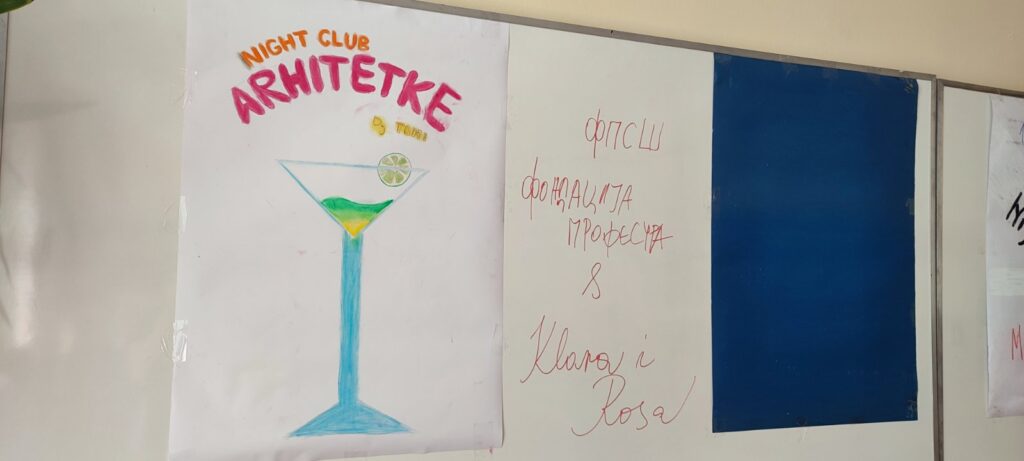 NIGHT CLUB
ARHITETKE
Dj TOMI
ФПСШ
ФОНДАЦИЈА
&
Klara i
Rosa
М